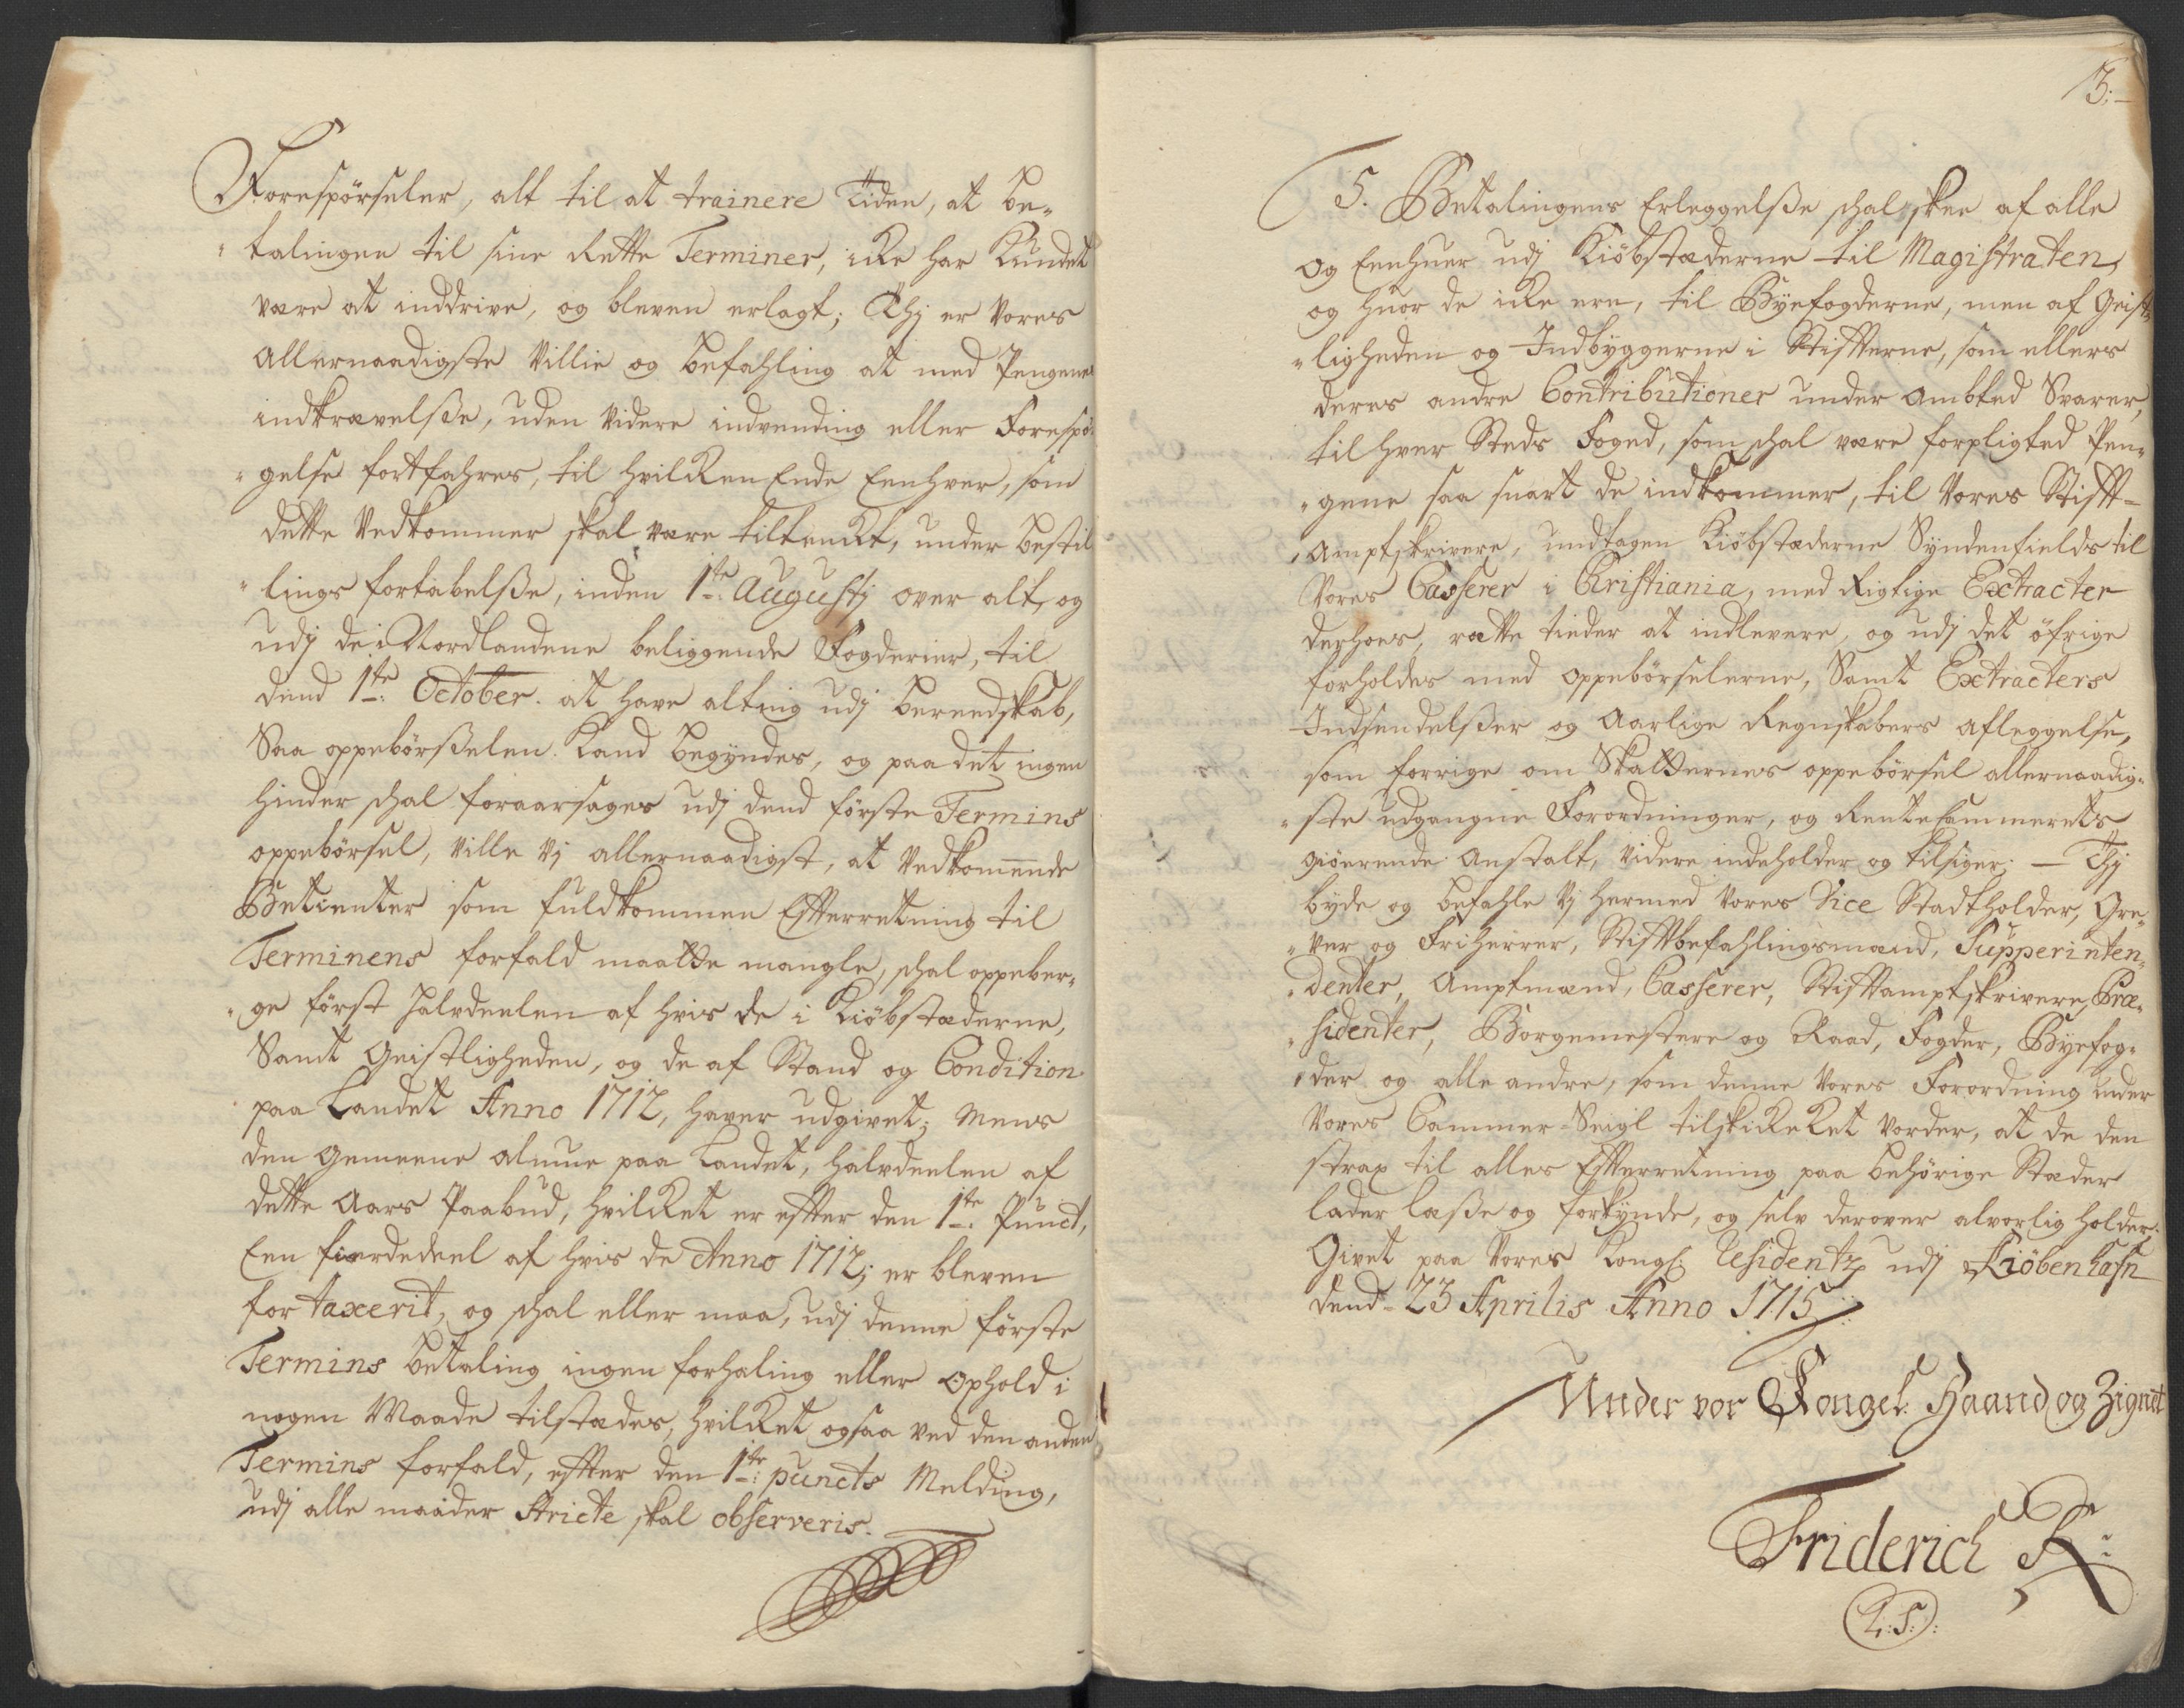 Forespørseler, alt til at trainere Tiden, at be-
talingen til sine Rette Terminer, icke har Kundet
være at inddrive, og bleven erlagt; Thj er Vores
Allernaadigste Villie og befahling at med Pengenes
indkrævelsse, uden videre indvending eller Forespø-
gelse fortfahres, til hvilcken Ende Eenhver, som
dette Vedkommer skal være tiltenckt, under bestil
lings fortabelsse, inden 1te Augustj over alt, og
udj de i Nordlandene beliggende Fogderier, til
dend 1te October. at have alting udj bereedskab,
Saa oppebørsselen Kand begyndes, og paa det ingen
hinder schal foraarsages udj dend første Termins
oppebørsel, ville Vj allernaadigst, at Vedkommende
Betienter som fuldkommen Efterretning til
Terminens forfald maatte mangle, schal oppeber-
ge først halvdeelen af hvis de i Kiøbstæderne,
Samt Geistligheden, og de af Stand og Condition
paa Landet Anno 1712, haver udgivet; Mens
den Gemeene almue paa Landet, halvdeelen af
dette Aars Paabud, hvilcket er effter den 1te Punct,
Een fierdedeel af hvis de Anno 1712; er bleven
for taxerit, og schal eller maa, udj denne første
Termins betaling ingen forhaling eller Ophold i
nogen Maade tilstædes, hvilcket ogsaa ved den anden
Termins forfald, effter den 1te puncts Melding,
udj alle maader Stricte skal observeris.
3:
5. Betalingens Erleggelsse schal skee af alle
og Eenhuer udj Kiøbstæderne til Magistraten,
og huor de icke ere, til Byefogderne, men af Geist-
ligheden og Indbyggerne i Stiffterne, som ellers
deres andre Contributioner under Ambted Svarer,
til hver Steds Foged, som schal være forpligted Pen-
gene saa snart de indkommer, til Vores Stifft-
Amptskrivere, undtagen Kiøbstæderne Syndenfields til
Vores Casserer i Christiania, med Rigtige Extracter
derhoes, rætte tieder at indlevere, og udj det øfrige
forholdes med oppebørselerne, Samt Extracters
Indsendelsser og Aarlige Regnskabers Afleggelse,
som forrige om Skatternes oppebørsel allernaadig-
ste udgangne Forordninger, og Rentekammerets
giörende Anstalt, videre indeholder og tilsiger. — Thj
byde og befahle Vj hermed Vores Vice Stadtholder, Gre-
ver og Friherrer, Stifftbefahlingsmænd, Supperinten-
denter, Amptmænd, Casserer, Stifftamptskrivere, Præ-
sidenter, Borgemestere og Raad, Fogder, Byefog-
der og alle andre, som denne Vores Forordning under
Vores Cammer-Seigl tilskickeket vorder, at de den
strax til alles Effterretning paa behørige Stæder
lader læsse og forkynde, og selv derover alvorlig holder;
Givet paa Vores Kongl: Residentz udj Kiøbenhafn
dend 23 Aprilis Anno 1715
Under vor Kongel: Haand og Zignet
Friderich R:
L:S: